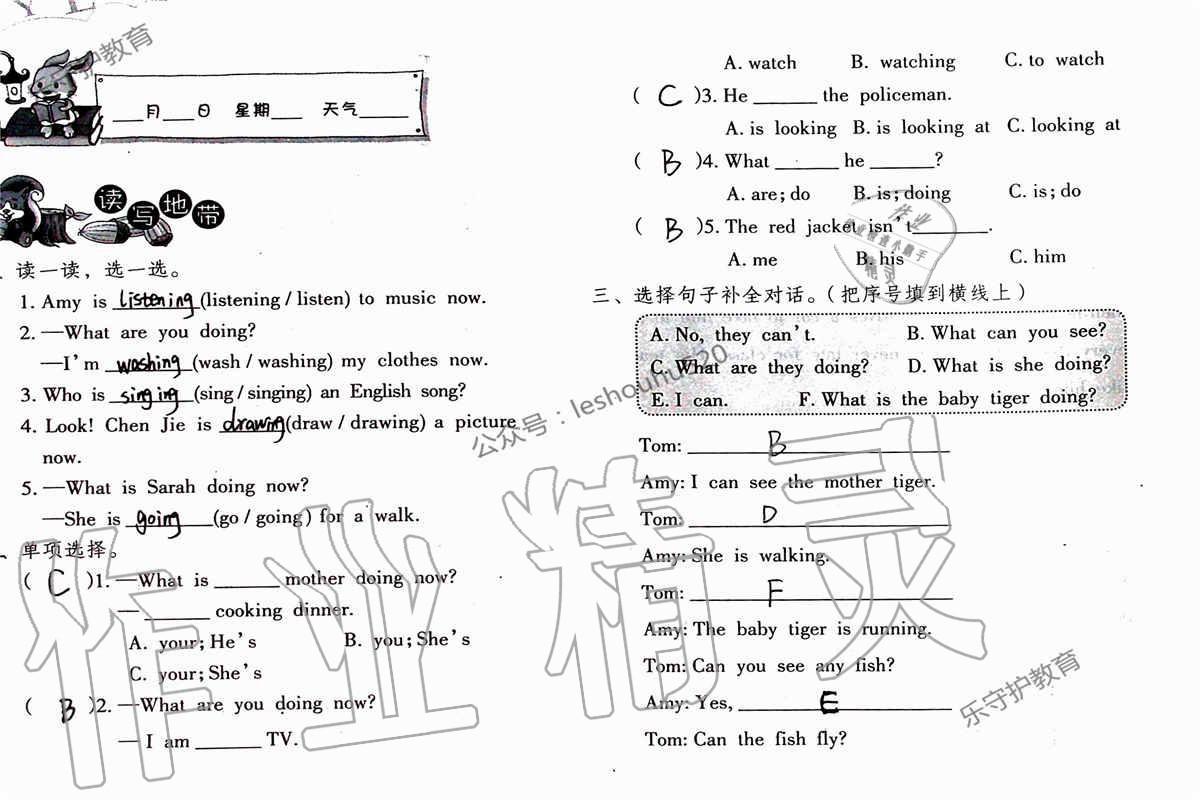 ___月___日 星期___ 天气_____
读写地带
、读一读，选一选。
1. Amy is listening (listening / listen) to music now.
2. —What are you doing?
—I'm washing (wash / washing) my clothes now.
3. Who is singing (sing / singing) an English song?
4. Look! Chen Jie is drawing (draw / drawing) a picture
now.
5. —What is Sarah doing now?
—She is going (go / going) for a walk.
、单项选择。
( C )1. —What is ______ mother doing now?
—______ cooking dinner.
A. your; He's B. you; She's
C. your; She's
( B )2. —What are you doing now?
— I am ______ TV.
A. watch B. watching C. to watch
( C )3. He ______ the policeman.
A. is looking B. is looking at C. looking at
( B )4. What ______ he ______?
A. are; do B. is; doing C. is; do
( B )5. The red jacket isn't ______.
A. me B. his C. him
三、选择句子补全对话。(把序号填到横线上)
A. No, they can't. B. What can you see?
C. What are they doing? D. What is she doing?
E. I can. F. What is the baby tiger doing?
Tom: B
Amy: I can see the mother tiger.
Tom: D
Amy: She is walking.
Tom: F
Amy: The baby tiger is running.
Tom: Can you see any fish?
Amy: Yes, E
Tom: Can the fish fly?
乐守护教育
作业精灵
乐守护教育